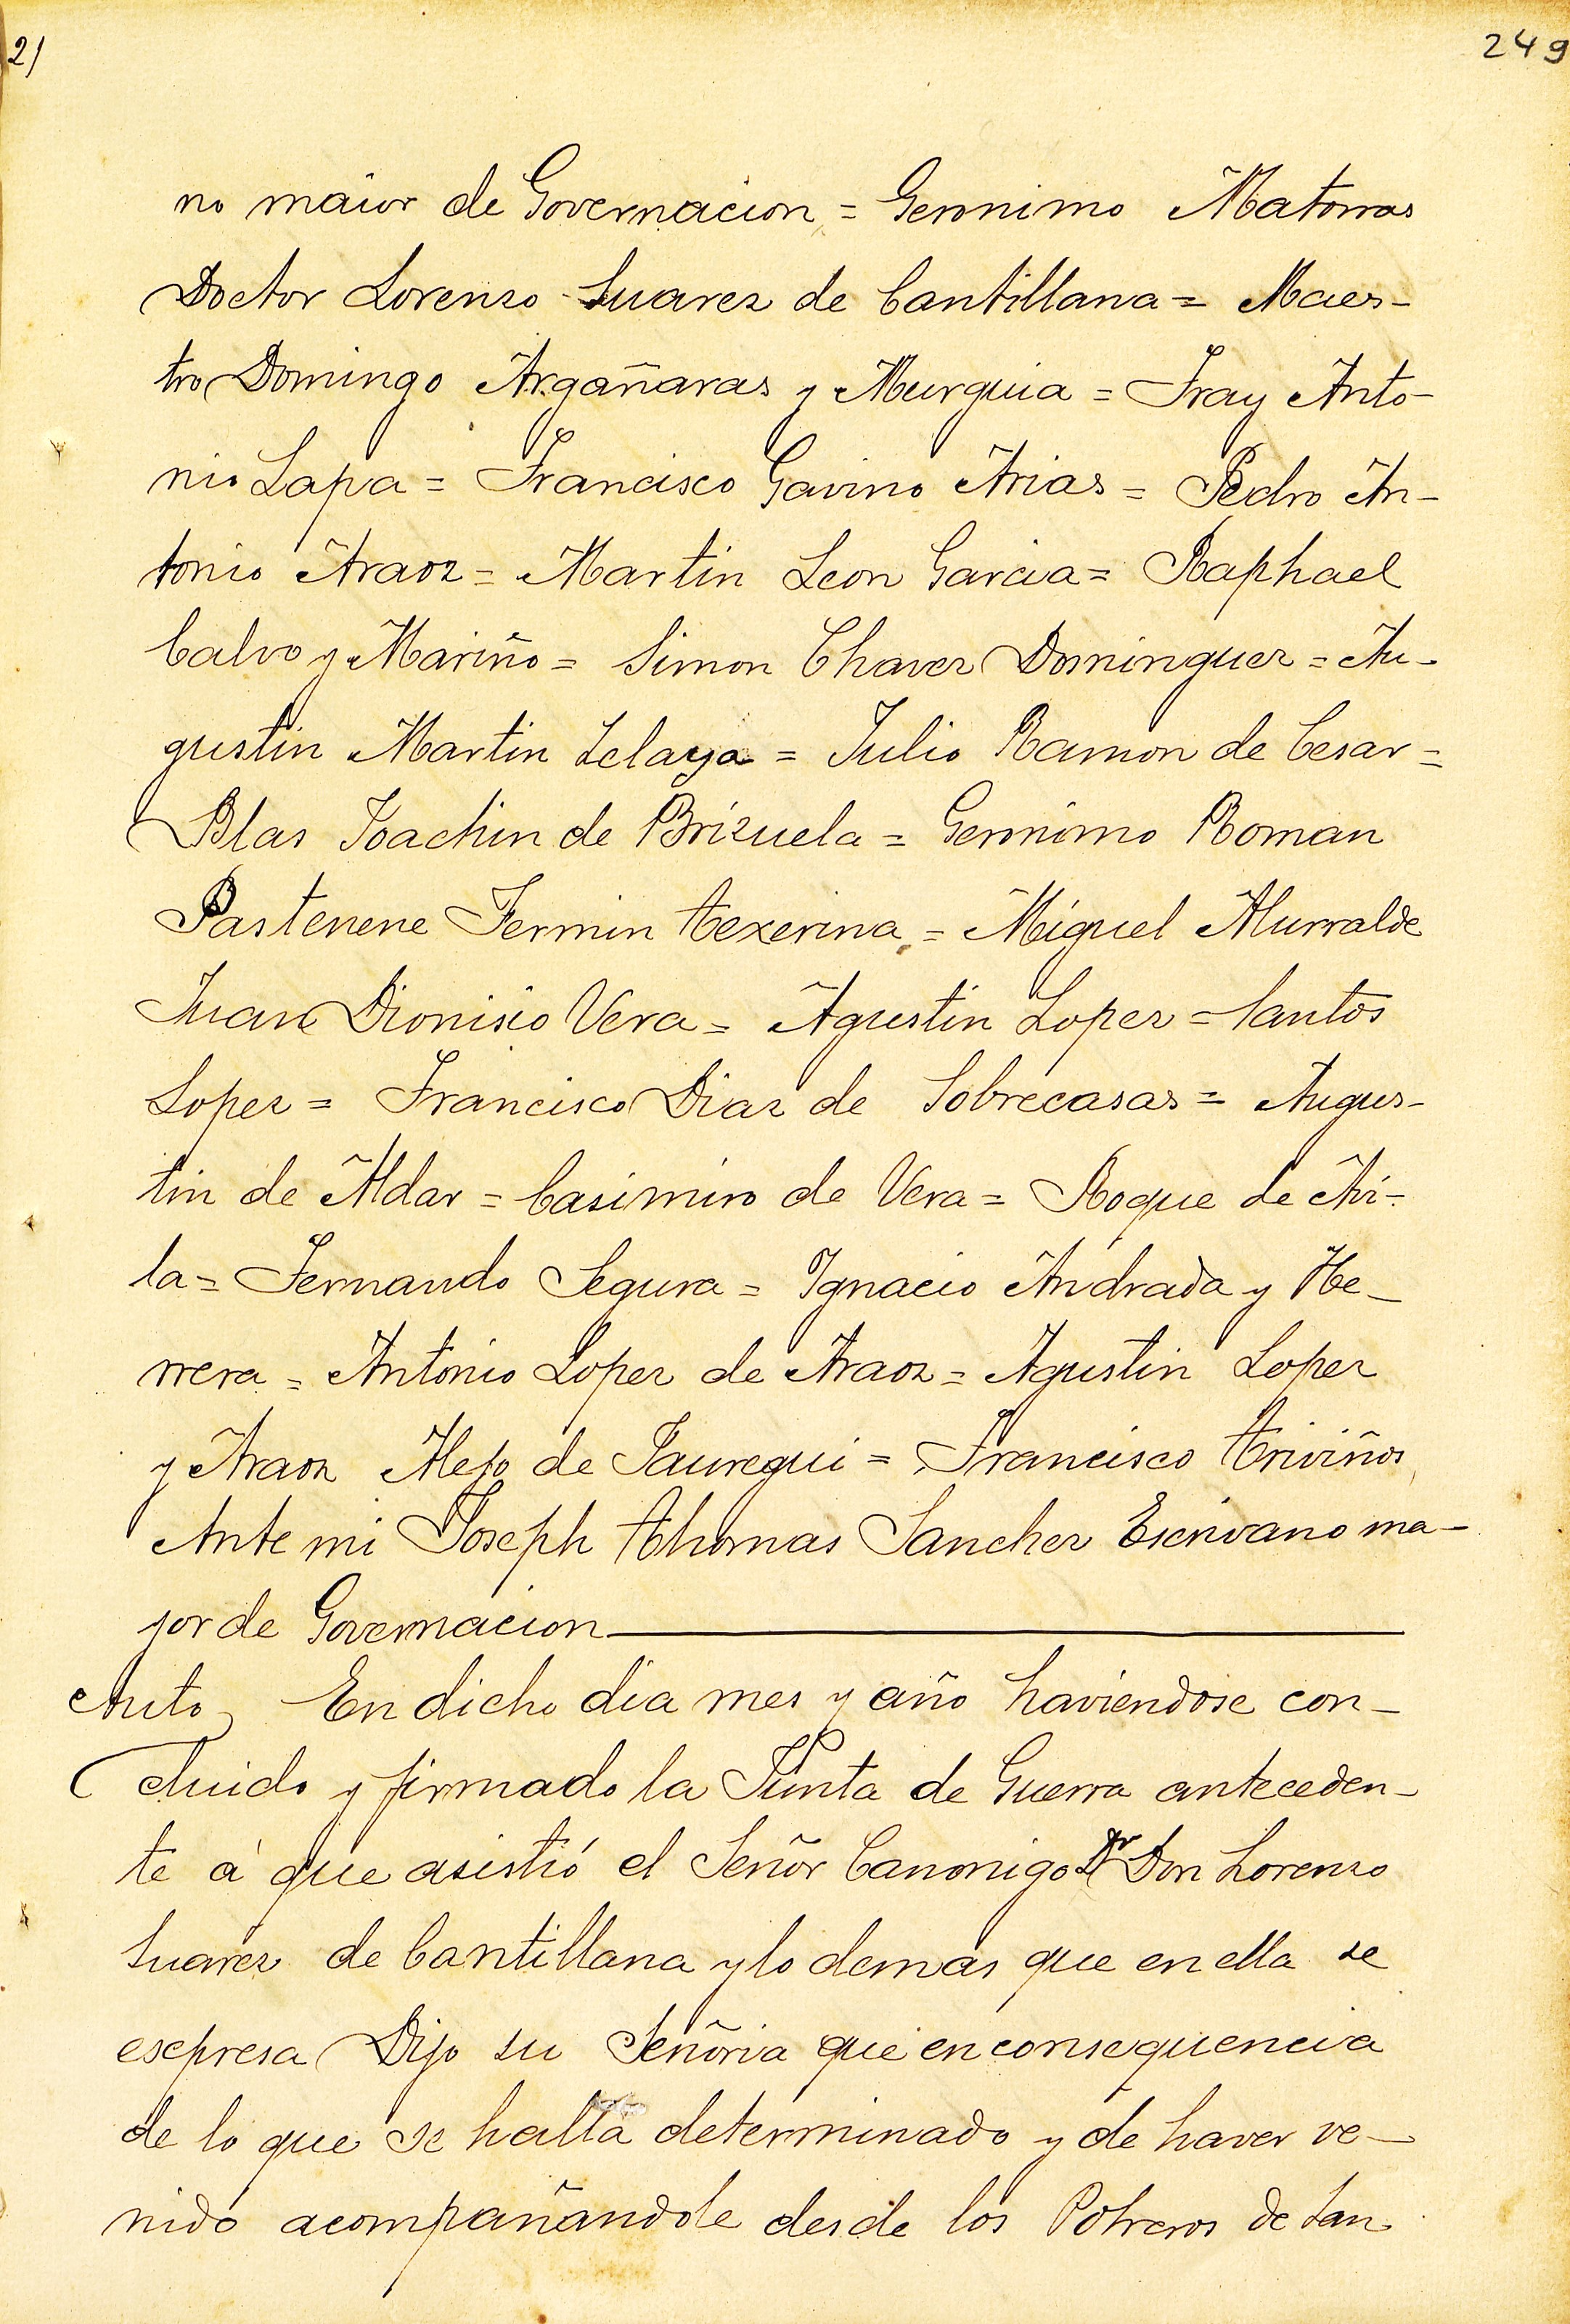 21
249
no maior de Governacion = Geronimo Matorras
Doctor Lorenzo Suarez de Cantillana = Maes-
tro Domingo Argañaras y Murguia = Fray Anto-
nio Lapa = Francisco Gavino Arias = Pedro An-
tonio Araoz = Martin Leon Garcia = Raphael
Calvo y Mariño = Simon Chavez Dominguez = Au-
gustin Martin Zelaya = Julio Ramon de Cesar =
Blas Joachin de Brizuela = Geronimo Roman
Pastenene Fermin Texerina = Miguel Alurralde
Juan Dionisio Vera = Agustin Lopez = Santos
Lopez = Francisco Diaz de Sobrecasas = Augus-
tin de Aldar = Casimiro de Vera = Roque de Avi-
la = Fernando Segura = Ignacio Andrada y He-
rrera = Antonio Lopez de Araoz = Agustin Lopez
y Araoz Alejo de Jauregui = Francisco Triviños
Ante mi Joseph Thomas Sanchez Escrivano ma-
yor de Governacion
Auto En dicho dia mes y año haviendose con-
cluido y firmado la Junta de Guerra anteceden-
te á que asistió el Señor Canonigo Dr Don Lorenzo
Suarez de Cantillana y lo demas que en ella se
escpresa Dijo su Señoria que en consequencia
de lo que se halla determinado y de haver ve-
nido acompañandole desde los Potreros de San